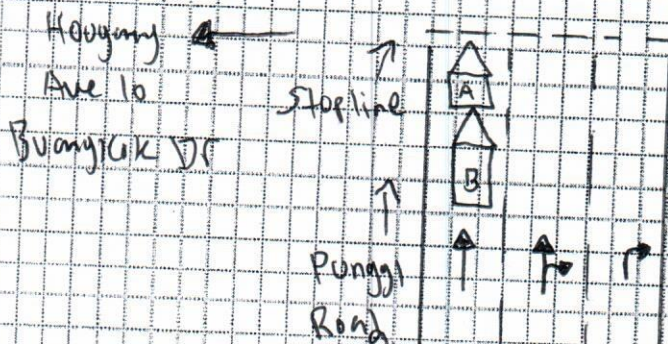 Hougang
Ave 10
Buangkok Dr
Stop line
A
B
Punggl
Road